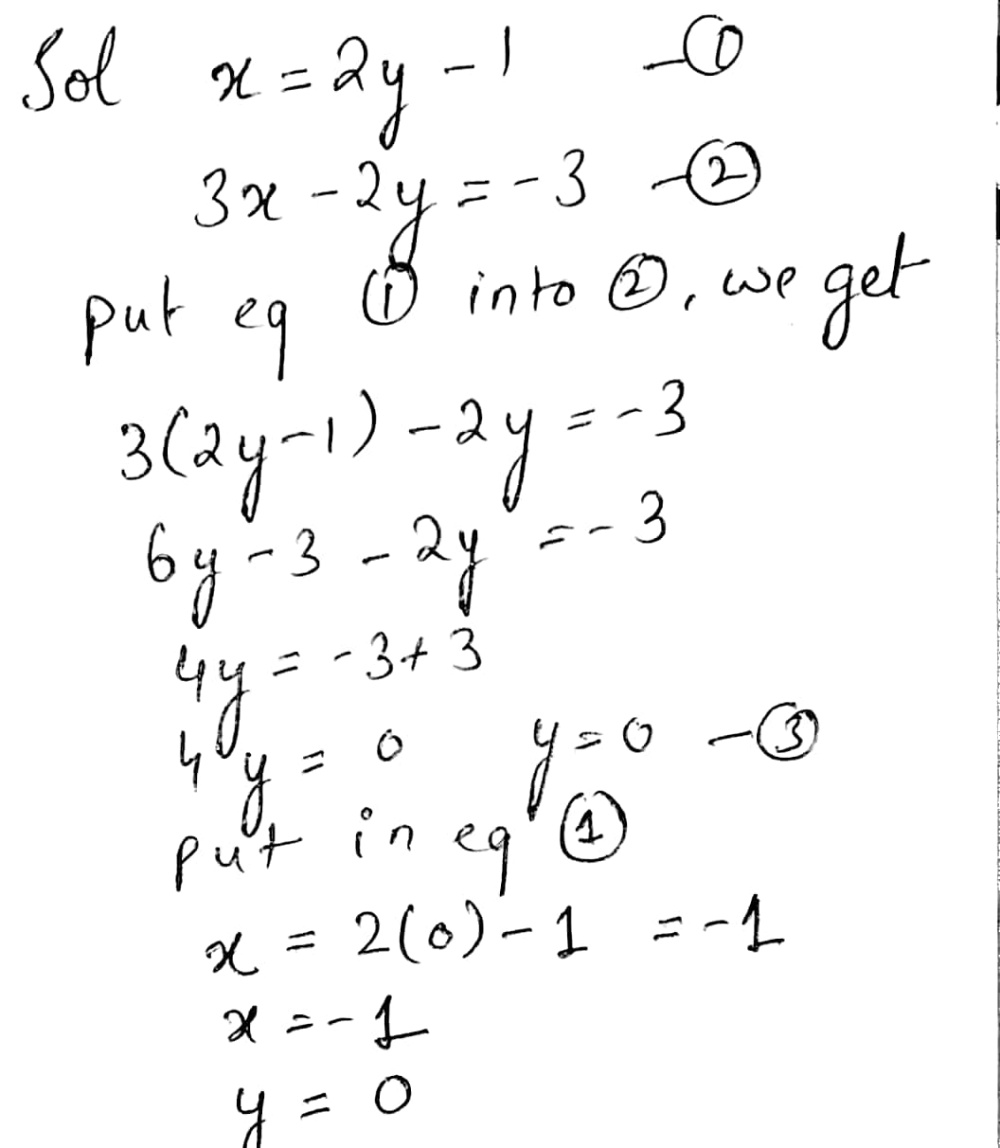 Sol x = 2y - 1 -①
3x - 2y = -3 -②
put eq ① into ②, we get
3(2y-1) - 2y = -3
6y - 3 - 2y = -3
4y = -3+3
4y = 0 y = 0 -③
put in eq ①
x = 2(0) - 1 = -1
x = -1
y = 0